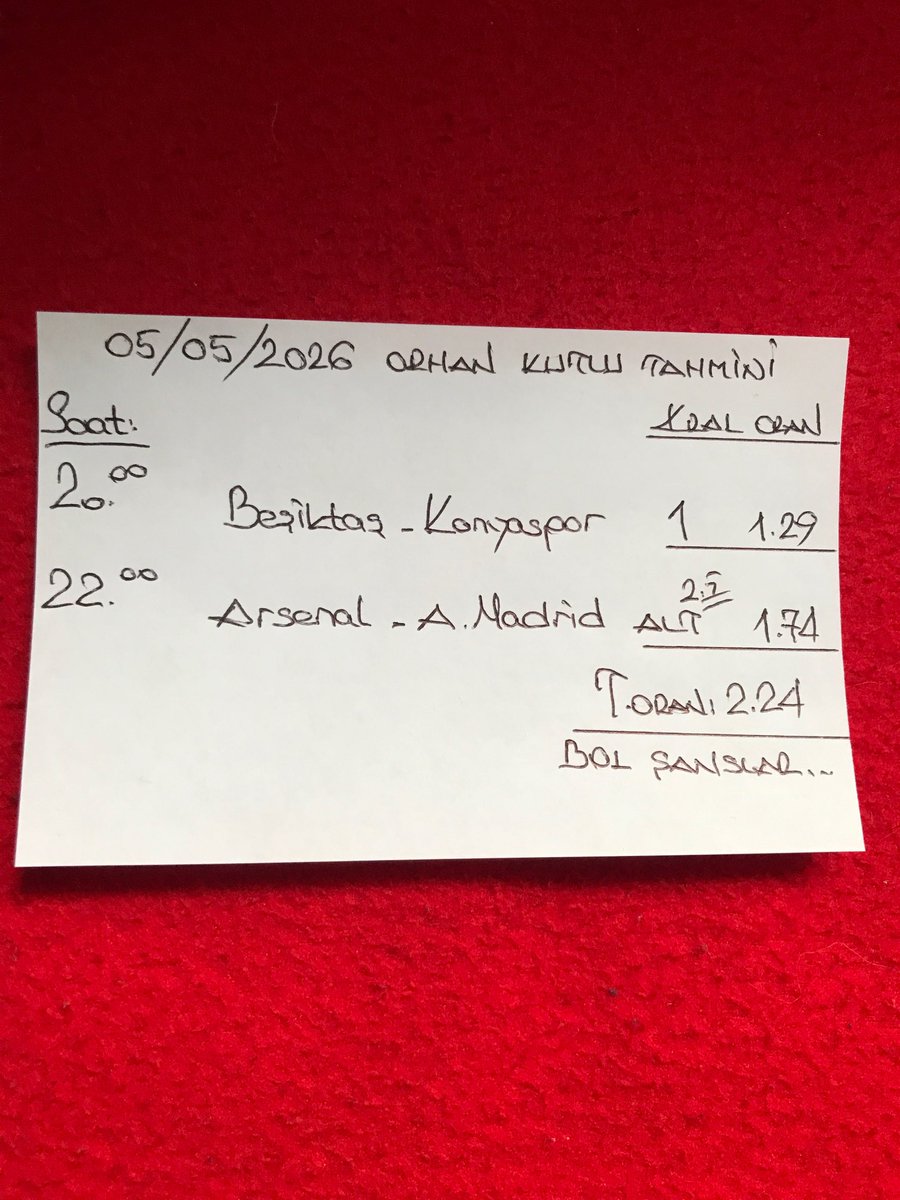 05/05/2026 ORHAN KUTLU TAHMİNİ
Saat: ORAN
20.00 Beşiktaş - Konyaspor 1 1.29
22.00 Arsenal - A. Madrid 2.5 ALT 1.74
T.ORAN: 2.24
BOL ŞANSLAR...